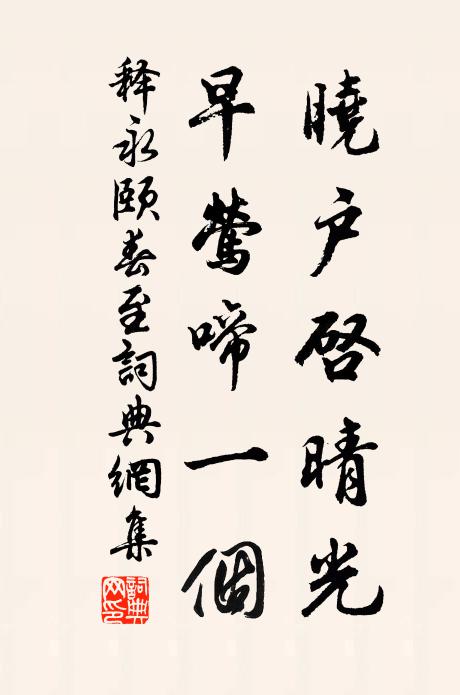 曉户啓晴光
早鶯啼一個
释永颐春至詞典網集
詞典网印